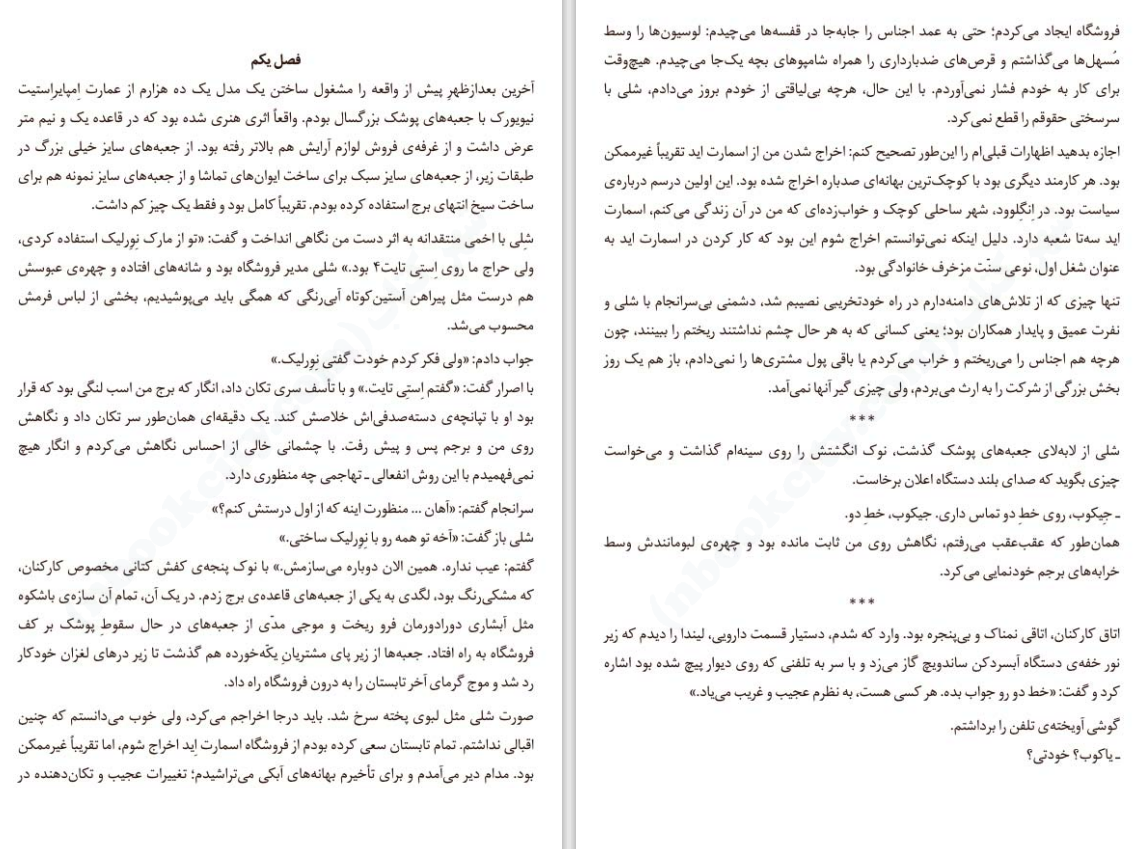 فصل یکم
آخرین بعدازظهرِ پیش از واقعه را مشغول ساختن یک مدل یک ده هزارم از عمارت اِمپایراِستیت
نیویورک با جعبه‌های پوشک بزرگسال بودم. واقعاً اثری هنری شده بود که در قاعده یک و نیم متر
عرض داشت و از غرفه‌ی فروش لوازم آرایش هم بالاتر رفته بود. از جعبه‌های سایز خیلی بزرگ در
طبقات زیر، از جعبه‌های سایز سبک برای ساخت ایوان‌های تماشا و از جعبه‌های سایز نمونه هم برای
ساخت سیخ انتهای برج استفاده کرده بودم. تقریباً کامل بود و فقط یک چیز کم داشت.
شلی با اخمی منتقدانه به اثر دست من نگاهی انداخت و گفت: «تو از مارک نِوِرلیک استفاده کردی،
ولی حراج ما روی اِستِی تایت۴ بود.» شلی مدیر فروشگاه بود و شانه‌های افتاده و چهره‌ی عبوسش
هم درست مثل پیراهن آستین‌کوتاه آبی‌رنگی که همگی باید می‌پوشیدیم، بخشی از لباس فرمش
محسوب می‌شد.
جواب دادم: «ولی فکر کردم خودت گفتی نِوِرلیک.»
با اصرار گفت: «گفتم اِستِی تایت.» و با تأسف سری تکان داد، انگار که برج من اسب لنگی بود که قرار
بود او با تپانچه‌ی دسته‌صدفی‌اش خلاصش کند. یک دقیقه‌ای همان‌طور سر تکان داد و نگاهش
روی من و برجم پس و پیش رفت. با چشمانی خالی از احساس نگاهش می‌کردم و انگار هیچ
نمی‌فهمیدم با این روش انفعالی ـ تهاجمی چه منظوری دارد.
سرانجام گفتم: «آهان ... منظورت اینه که از اول درستش کنم؟»
شلی باز گفت: «آخه تو همه رو با نِوِرلیک ساختی.»
گفتم: عیب نداره. همین الان دوباره می‌سازمش.» با نوک پنجه‌ی کفش کتانی مخصوص کارکنان،
که مشکی‌رنگ بود، لگدی به یکی از جعبه‌های قاعده‌ی برج زدم. در یک آن، تمام آن سازه‌ی باشکوه
مثل آبشاری دورادورمان فرو ریخت و موجی مدّی از جعبه‌های در حال سقوطِ پوشک بر کف
فروشگاه به راه افتاد. جعبه‌ها از زیر پای مشتریانِ یکّه‌خورده هم گذشت تا زیر درهای لغزان خودکار
رد شد و موج گرمای آخر تابستان را به درون فروشگاه راه داد.
صورت شلی مثل لبوی پخته سرخ شد. باید درجا اخراجم می‌کرد، ولی خوب می‌دانستم که چنین
اقبالی نداشتم. تمام تابستان سعی کرده بودم از فروشگاه اسمارت اِید اخراج شوم، اما تقریباً غیرممکن
بود. مدام دیر می‌آمدم و برای تأخیرم بهانه‌های آبکی می‌تراشیدم؛ تغییرات عجیب و تکان‌دهنده در
فروشگاه ایجاد می‌کردم؛ حتی به عمد اجناس را جابه‌جا در قفسه‌ها می‌چیدم: لوسیون‌ها را وسط
مُسهل‌ها می‌گذاشتم و قرص‌های ضدبارداری را همراه شامپوهای بچه یک‌جا می‌چیدم. هیچ‌وقت
برای کار به خودم فشار نمی‌آوردم. با این حال، هرچه بی‌لیاقتی از خودم بروز می‌دادم، شلی با
سرسختی حقوقم را قطع نمی‌کرد.
اجازه بدهید اظهارات قبلی‌ام را این‌طور تصحیح کنم: اخراج شدن من از اسمارت اید تقریباً غیرممکن
بود. هر کارمند دیگری بود با کوچک‌ترین بهانه‌ای صدباره اخراج شده بود. این اولین درسم درباره‌ی
سیاست بود. در اِنگِلوود، شهر ساحلی کوچک و خواب‌زده‌ای که من در آن زندگی می‌کنم، اسمارت
اید سه‌تا شعبه دارد. دلیل اینکه نمی‌توانستم اخراج شوم این بود که کار کردن در اسمارت اید به
عنوان شغل اول، نوعی سنّت مزخرف خانوادگی بود.
تنها چیزی که از تلاش‌های دامنه‌دارم در راه خودتخریبی نصیبم شد، دشمنی بی‌سرانجام با شلی و
نفرت عمیق و پایدار همکاران بود؛ یعنی کسانی که به هر حال چشم نداشتند ریختم را ببینند، چون
هرچه هم اجناس را می‌ریختم و خراب می‌کردم یا باقی پول مشتری‌ها را نمی‌دادم، باز هم یک روز
بخش بزرگی از شرکت را به ارث می‌بردم، ولی چیزی گیر آنها نمی‌آمد.
***
شلی از لابه‌لای جعبه‌های پوشک گذشت، نوک انگشتش را روی سینه‌ام گذاشت و می‌خواست
چیزی بگوید که صدای بلند دستگاه اعلان برخاست.
ـ جِیکوب، روی خطِ دو تماس داری. جیکوب، خطِ دو.
همان‌طور که عقب‌عقب می‌رفتم، نگاهش روی من ثابت مانده بود و چهره‌ی لبومانندش وسط
خرابه‌های برجم خودنمایی می‌کرد.
***
اتاق کارکنان، اتاقی نمناک و بی‌پنجره بود. وارد که شدم، دستیار قسمت دارویی، لیندا را دیدم که زیر
نور خفه‌ی دستگاه آبسردکن ساندویچ گاز می‌زد و با سر به تلفنی که روی دیوار پیچ شده بود اشاره
کرد و گفت: «خط دو رو جواب بده. هر کسی هست، به نظرم عجیب و غریب می‌یاد.»
گوشی آویخته‌ی تلفن را برداشتم.
ـ یاکوب؟ خودتی؟